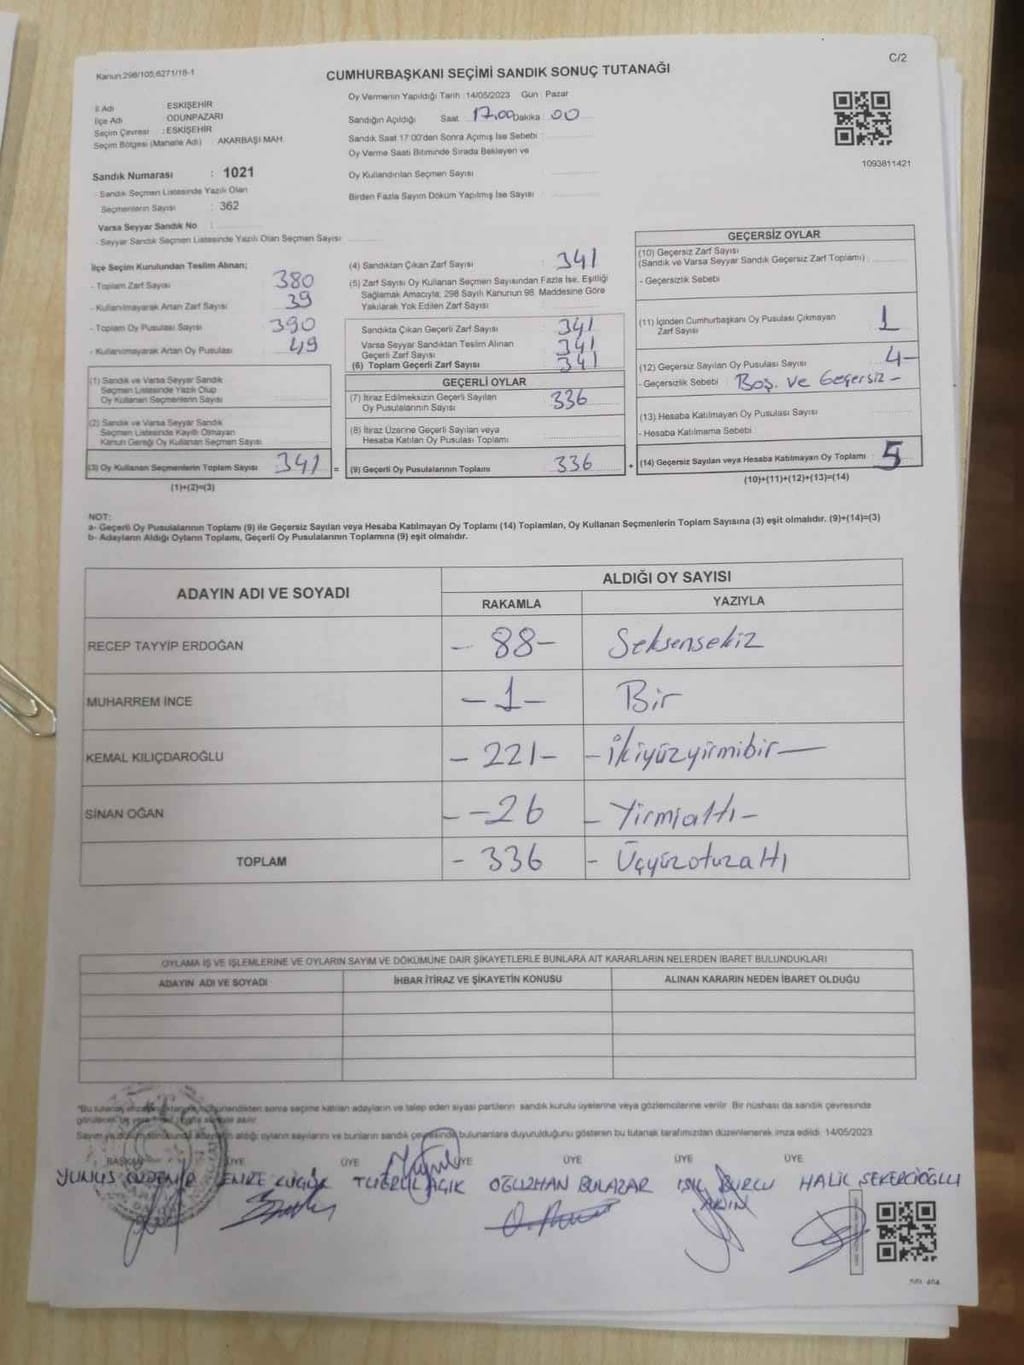 Kanun:298/105;6271/18-1
C/2
CUMHURBAŞKANI SEÇİMİ SANDIK SONUÇ TUTANAĞI
İl Adı ESKİŞEHİR
İlçe Adı ODUNPAZARI
Seçim Çevresi : ESKİŞEHİR
Seçim Bölgesi (Mahalle Adı) : AKARBAŞI MAH.
Sandık Numarası : 1021
- Sandık Seçmen Listesinde Yazılı Olan
Seçmenlerin Sayısı : 362
Varsa Seyyar Sandık No :
- Seyyar Sandık Seçmen Listesinde Yazılı Olan Seçmen Sayısı
Oy Vermenin Yapıldığı Tarih : 14/05/2023 Gün : Pazar
Sandığın Açıldığı Saat 17.00 Dakika : 00
Sandık Saat 17:00'den Sonra Açılmış İse Sebebi :
Oy Verme Saati Bitiminde Sırada Bekleyen ve
Oy Kullandırılan Seçmen Sayısı
Birden Fazla Sayım Döküm Yapılmış İse Sayısı
1093811421
İlçe Seçim Kurulundan Teslim Alınan;
- Toplam Zarf Sayısı 380
- Kullanılmayarak Artan Zarf Sayısı 39
- Toplam Oy Pusulası Sayısı 390
- Kullanılmayarak Artan Oy Pusulası 49
(1) Sandık ve Varsa Seyyar Sandık
Seçmen Listesinde Yazılı Olup
Oy Kullanan Seçmenlerin Sayısı
(2) Sandık ve Varsa Seyyar Sandık
Seçmen Listesinde Kayıtlı Olmayan
Kanun Gereği Oy Kullanan Seçmen Sayısı
(3) Oy Kullanan Seçmenlerin Toplam Sayısı 341 =
(1)+(2)=(3)
(4) Sandıktan Çıkan Zarf Sayısı : 341
(5) Zarf Sayısı Oy Kullanan Seçmen Sayısından Fazla İse, Eşitliği
Sağlamak Amacıyla, 298 Sayılı Kanunun 98. Maddesine Göre
Yakılarak Yok Edilen Zarf Sayısı
Sandıkta Çıkan Geçerli Zarf Sayısı : 341
Varsa Seyyar Sandıktan Teslim Alınan
Geçerli Zarf Sayısı 341
(6) Toplam Geçerli Zarf Sayısı : 341
GEÇERLİ OYLAR
(7) İtiraz Edilmeksizin Geçerli Sayılan
Oy Pusulalarının Sayısı : 336
(8) İtiraz Üzerine Geçerli Sayılan veya
Hesaba Katılan Oy Pusulası Toplamı
(9) Geçerli Oy Pusulalarının Toplamı : 336 +
GEÇERSİZ OYLAR
(10) Geçersiz Zarf Sayısı
(Sandık ve Varsa Seyyar Sandık Geçersiz Zarf Toplamı) :
- Geçersizlik Sebebi :
(11) İçinden Cumhurbaşkanı Oy Pusulası Çıkmayan
Zarf Sayısı 1
(12) Geçersiz Sayılan Oy Pusulası Sayısı : 4-
- Geçersizlik Sebebi : Boş. Ve Geçersiz -
(13) Hesaba Katılmayan Oy Pusulası Sayısı :
- Hesaba Katılmama Sebebi :
(14) Geçersiz Sayılan veya Hesaba Katılmayan Oy Toplamı : 5
(10)+(11)+(12)+(13)=(14)
NOT:
a- Geçerli Oy Pusulalarının Toplamı (9) ile Geçersiz Sayılan veya Hesaba Katılmayan Oy Toplamı (14) Toplamları, Oy Kullanan Seçmenlerin Toplam Sayısına (3) eşit olmalıdır. (9)+(14)=(3)
b- Adayların Aldığı Oyların Toplamı, Geçerli Oy Pusulalarının Toplamına (9) eşit olmalıdır.
ADAYIN ADI VE SOYADI
ALDIĞI OY SAYISI
RAKAMLA YAZIYLA
RECEP TAYYİP ERDOĞAN - 88 - Seksensekiz
MUHARREM İNCE - 1 - Bir
KEMAL KILIÇDAROĞLU - 221 - - İkiyüzyirmibir -
SİNAN OĞAN - - 26 - Yirmialtı -
TOPLAM - 336 - Üçyüzotuzaltı
OYLAMA İŞ VE İŞLEMLERİNE VE OYLARIN SAYIM VE DÖKÜMÜNE DAİR ŞİKAYETLERLE BUNLARA AİT KARARLARIN NELERDEN İBARET BULUNDUKLARI
ADAYIN ADI VE SOYADI İHBAR İTİRAZ VE ŞİKAYETİN KONUSU ALINAN KARARIN NEDEN İBARET OLDUĞU
sonra seçime katılan adayların ve talep eden siyasi partilerin sandık kurulu üyelerine veya gözlemcilerine verilir. Bir nüshası da sandık çevresinde
aldığı oyların sayılarını ve bunların sandık çevresinde bulunanlara duyurulduğunu gösteren bu tutanak tarafımızdan düzenlenerek imza edildi. 14/05/2023
BAŞKAN ÜYE ÜYE ÜYE ÜYE ÜYE ÜYE
YUNUS EMRE KÜÇÜK TUĞRUL AÇIK OĞUZHAN BULAZAR IŞIL BURCU HALİL ŞEKERCİOĞLU
AKIN